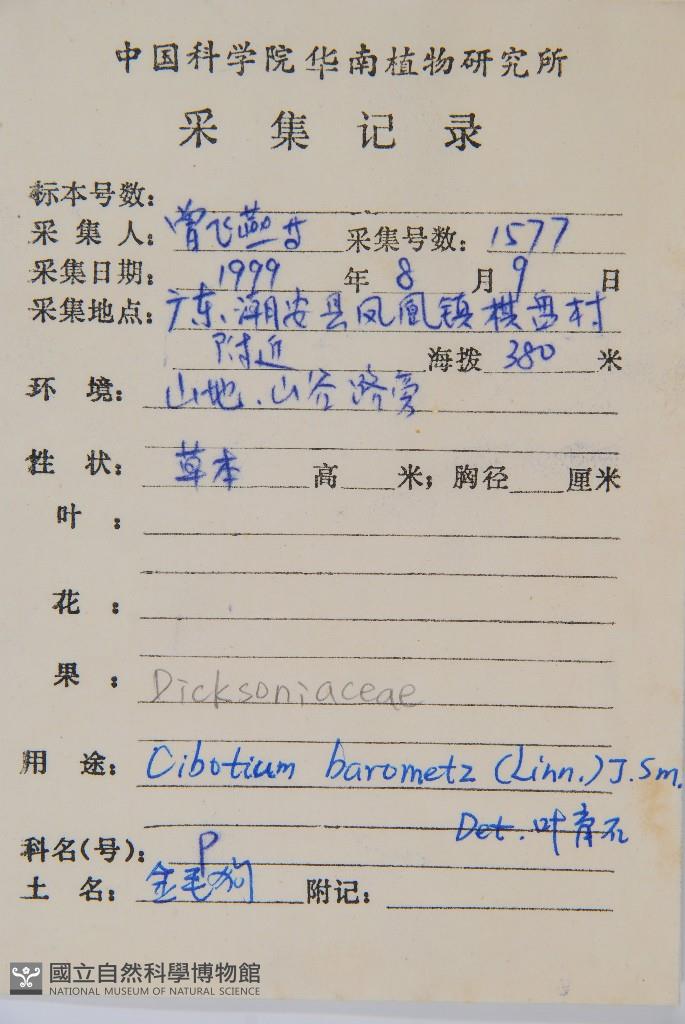 中国科学院华南植物研究所
采集记录
标本号数：
采集人：曾飞燕等 采集号数：1577
采集日期：1999年8月9日
采集地点：广东、潮安县凤凰镇棋盘村
附近 海拨 380 米
环境：山地、山谷路旁
性状：草本 高 米；胸径 厘米
叶：
花：
果：Dicksoniaceae
用途：Cibotium barometz (Linn.) J. Sm.
Det. 叶育石
科名(号)：P
土名：金毛狗 附记：
國立自然科學博物館
NATIONAL MUSEUM OF NATURAL SCIENCE